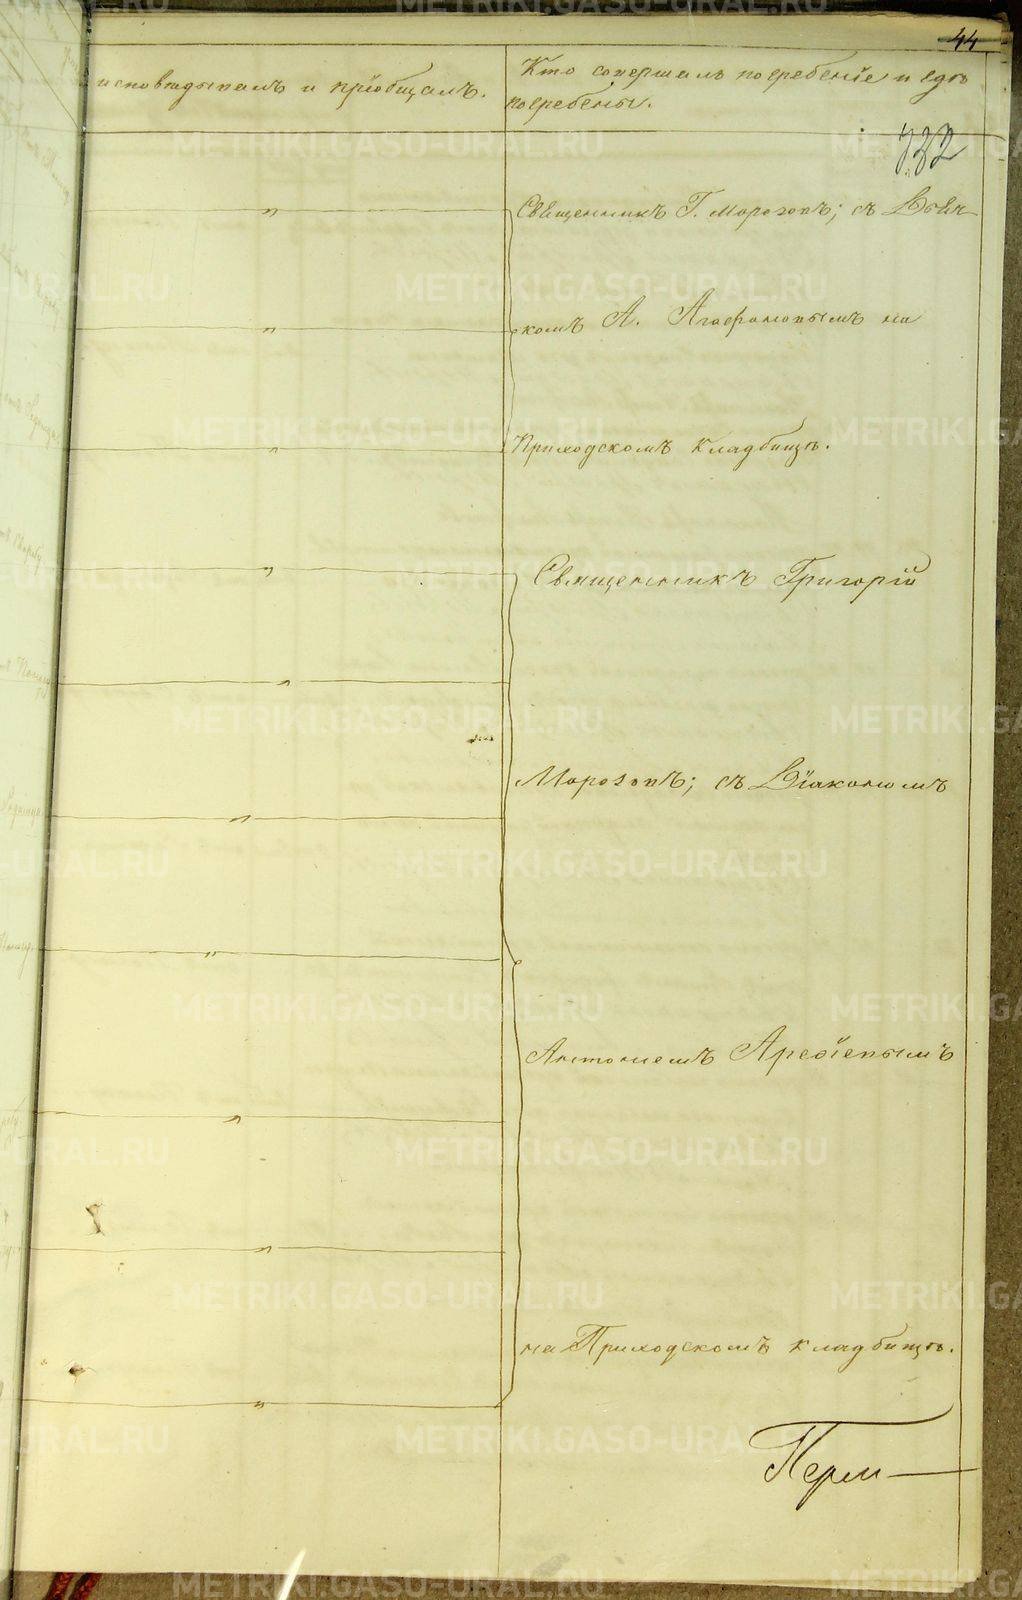 44
исповѣдывалъ и пріобщалъ.
Кто совершалъ погребеніе и гдѣ
погребены.
732
Священникъ Г. Морозовъ; съ Дьяч-
комъ А. Агафоновымъ на
Приходскомъ кладбищѣ.
Священникъ Григорій
Морозовъ; съ Діакономъ
Антоніемъ Арефіевымъ
на Приходскомъ кладбищѣ.
Перм-
METRIKI.GASO-URAL.RU